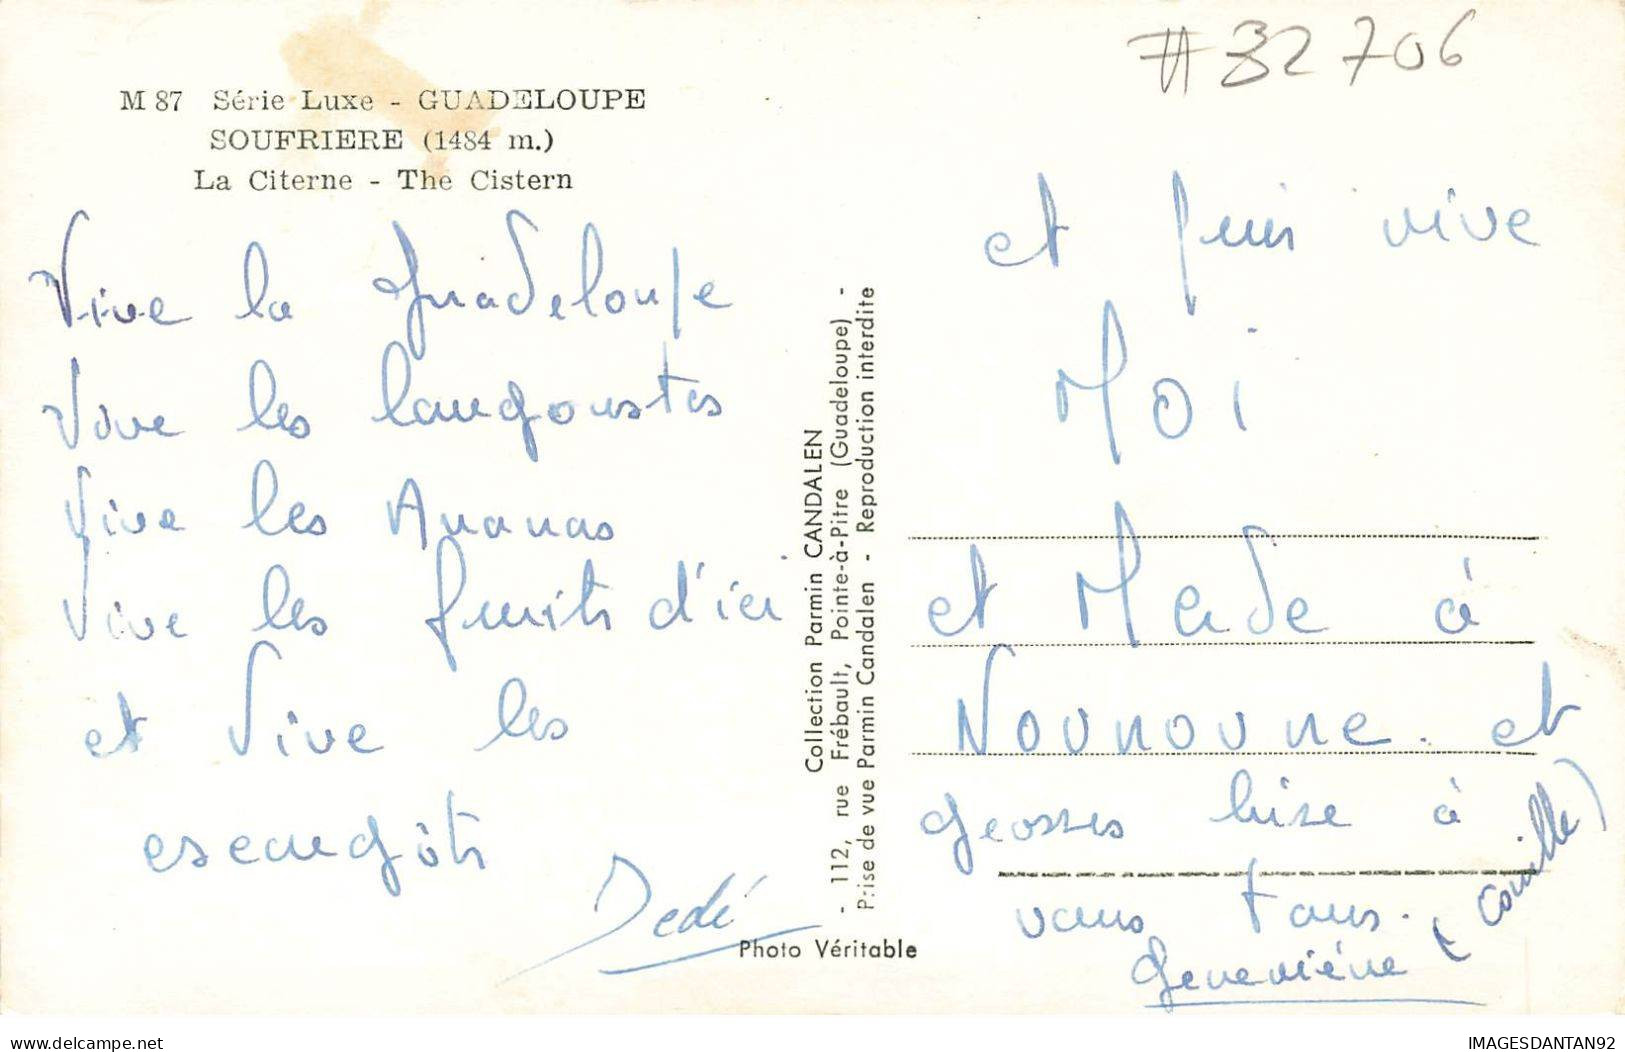 #32706
M 87 Série Luxe - GUADELOUPE
SOUFRIERE (1484 m.)
La Citerne - The Cistern
Vive la Guadeloupe
Vive les langoustes
Vive les Ananas
Vive les fruits d'ici
et Vive les
escargots
Dedé
Collection Parmin CANDALEN
- 112, rue Frébault, Pointe-à-Pitre (Guadeloupe) -
Prise de vue Parmin Candalen - Reproduction interdite
Photo Véritable
et puis vive
Moi
et Made à
Nounoune. et
grosses bise à
vous tous.
Geneviéve
delcampe.net
IMAGESDANTAN92